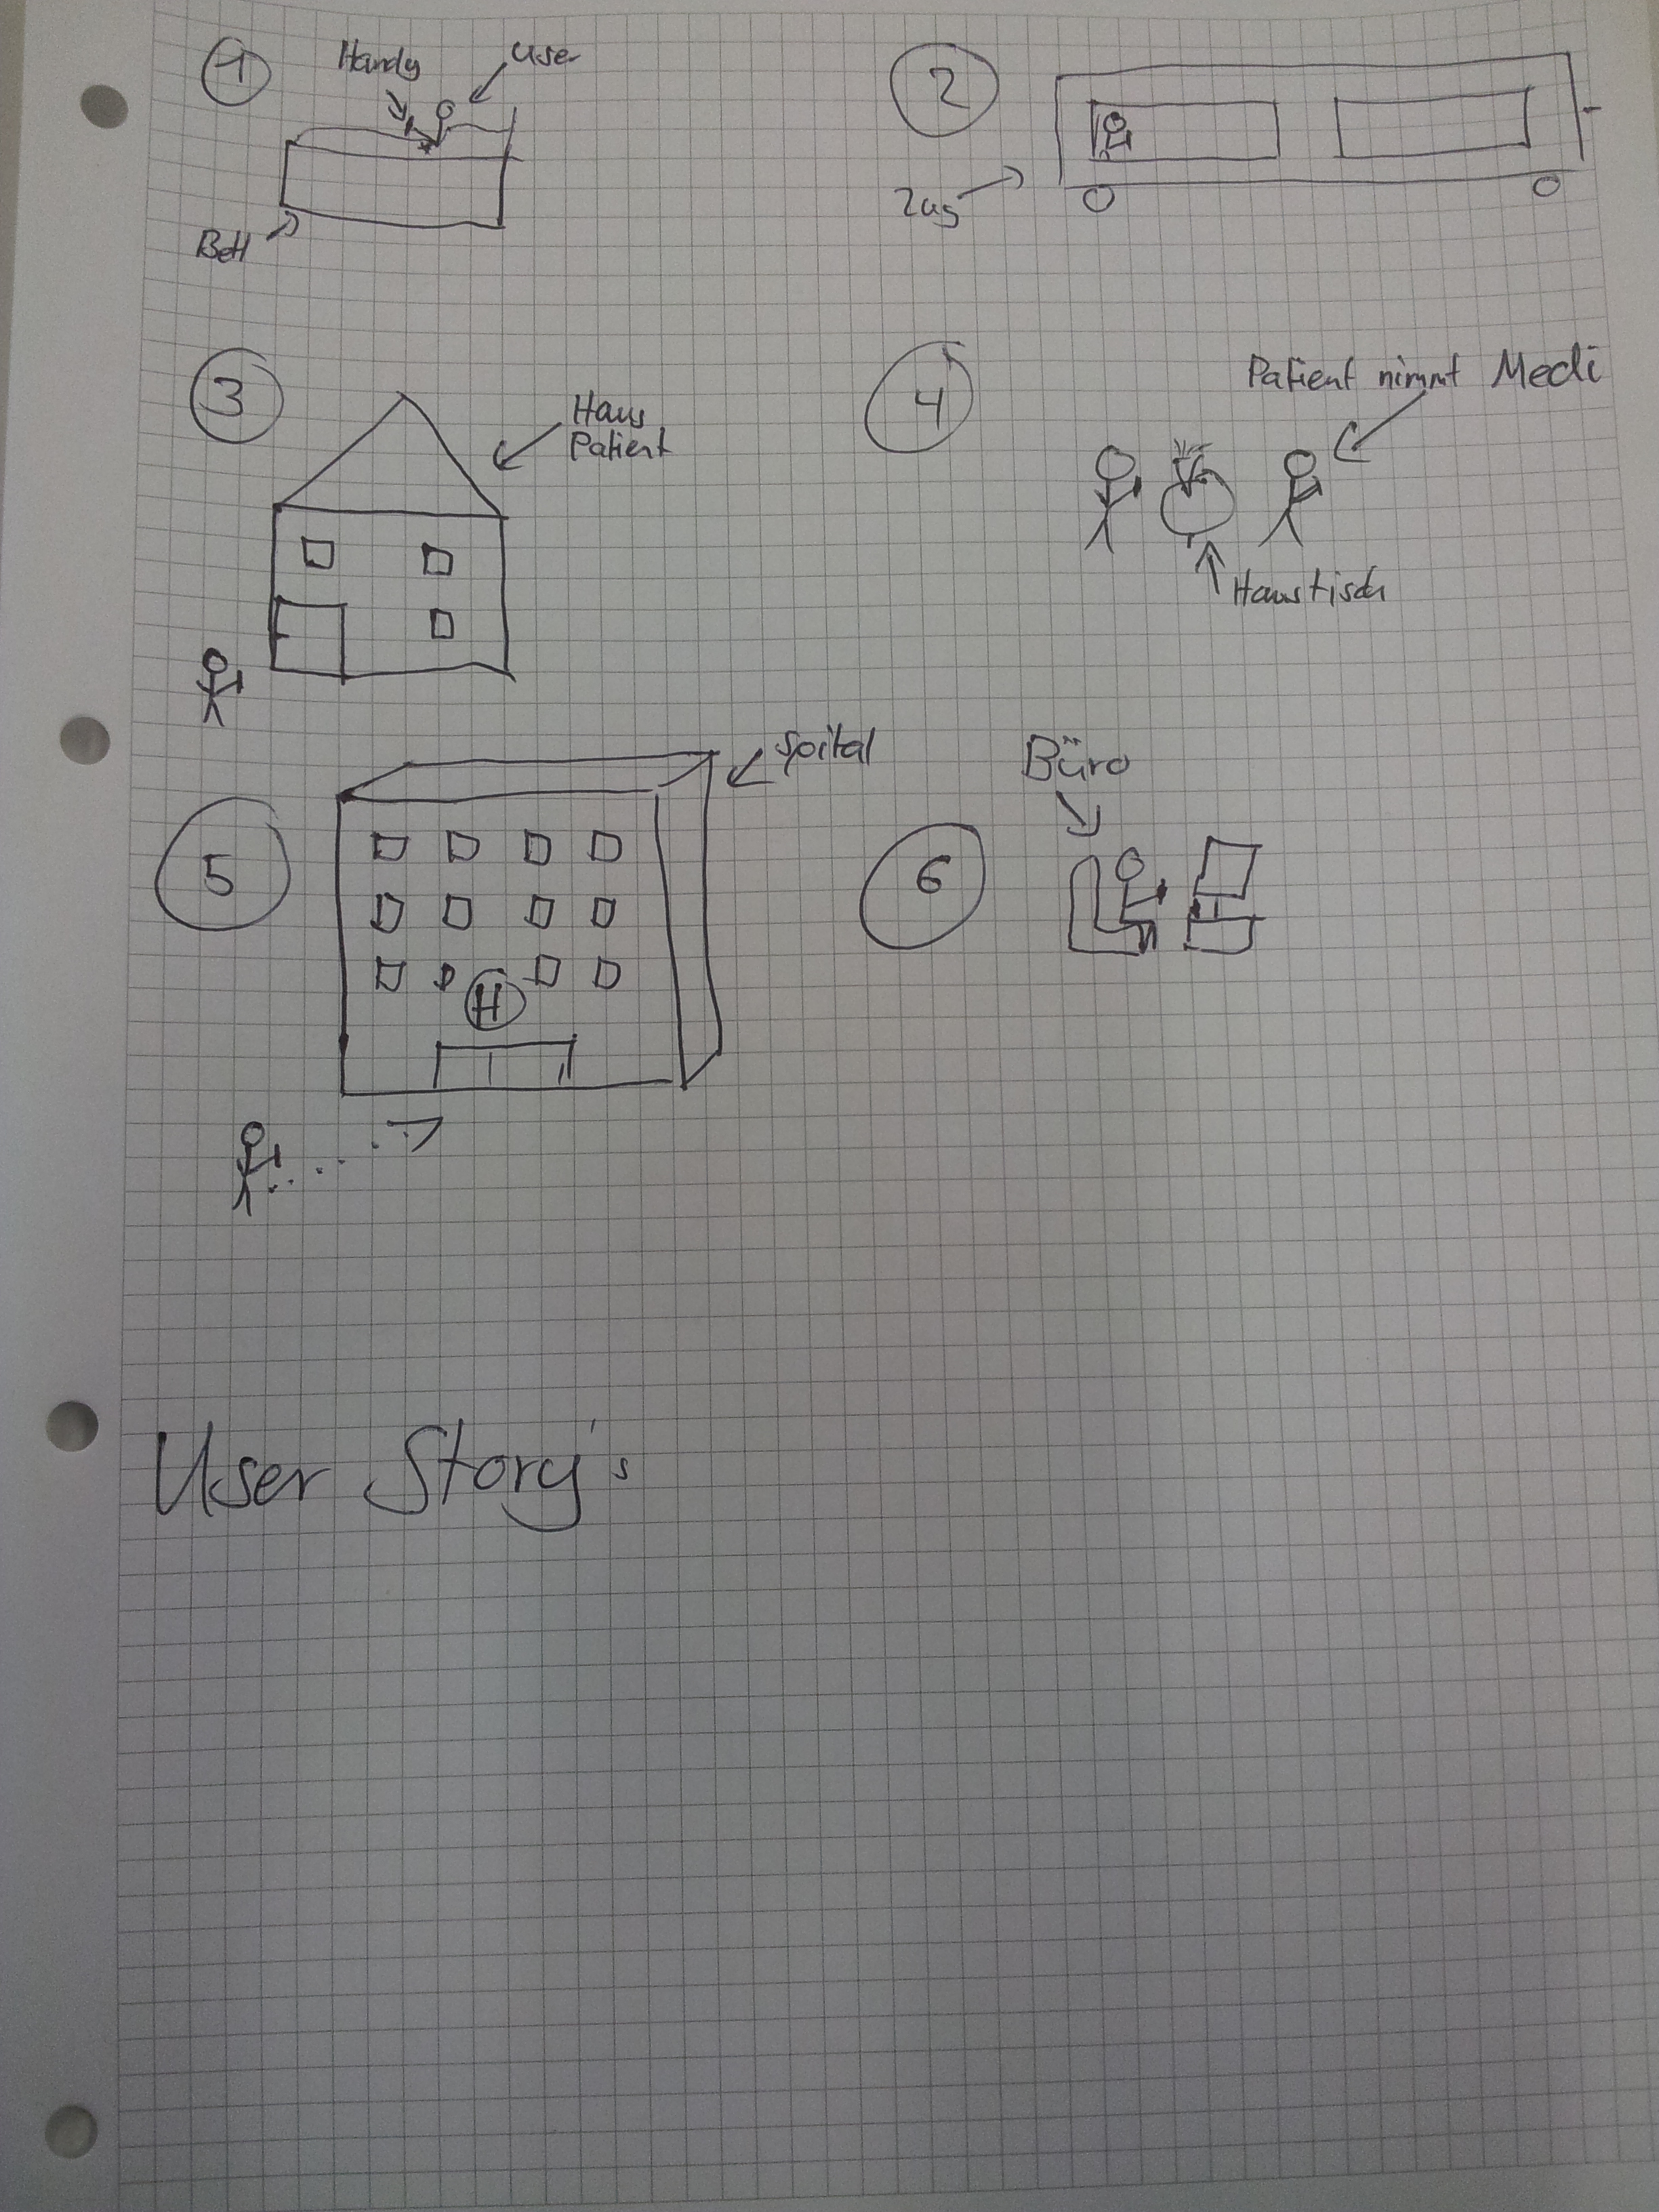 1
Handy
User
Bett
2
Zug
3
Haus
Patient
4
Patient nimmt Medi
Haustisch
5
Spital
H
6
Büro
User Story's